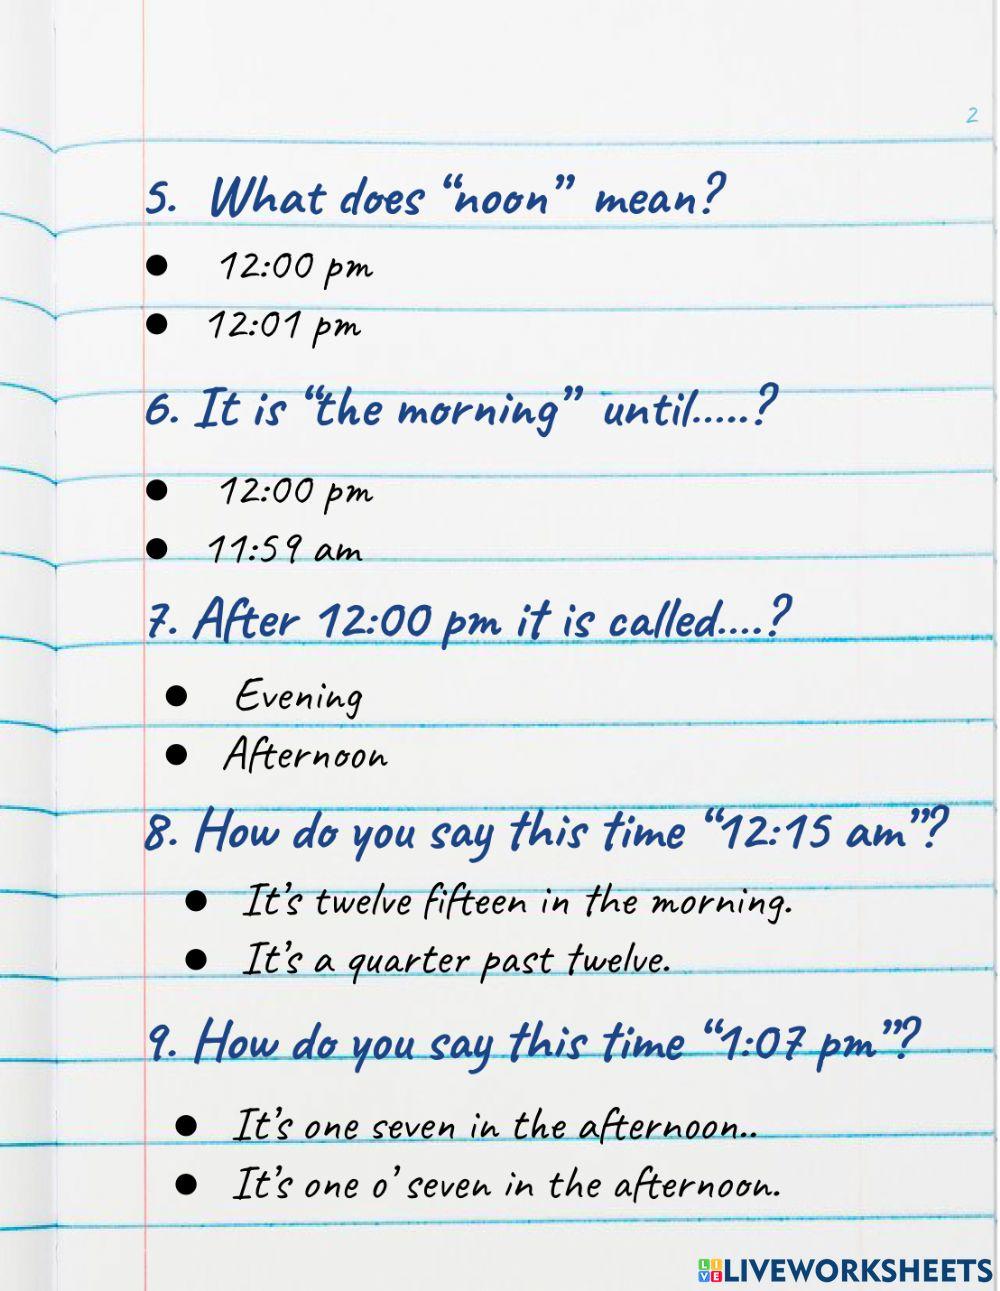 2
5. What does “noon” mean?
● 12:00 pm
● 12:01 pm
6. It is “the morning” until.....?
● 12:00 pm
● 11:59 am
7. After 12:00 pm it is called....?
● Evening
● Afternoon
8. How do you say this time “12:15 am”?
● It’s twelve fifteen in the morning.
● It’s a quarter past twelve.
9. How do you say this time “1:07 pm”?
● It’s one seven in the afternoon..
● It’s one o’ seven in the afternoon.
LIVE LIVEWORKSHEETS